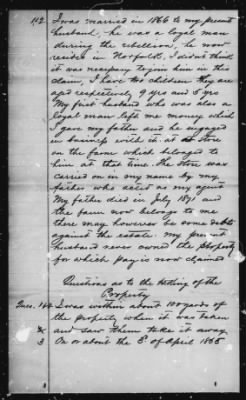 142 I was married in 1866 to my present
husband, he was a loyal man
during the rebellion, he now
resides in Norfolk, I did not think
it was necessary to join him in this
claim, I have two children they are
aged respectively 9 yrs and 5 yrs
My first husband who was also a
loyal man left me money which
I gave my father and he engaged
in business with it at store
on the farm which belonged to
him at that time. The store was
carried on in my name by my
father who acted as my agent
My father died in July 1871 and
the farm now belongs to me
there may however be some debts
against the estate. my present
husband never owned the property
for which pay is now claimed
Questions as to the taking of the
Property
Ques. 144 I was within about 100 yards of
the property when it was taken
and saw them take it away
3 On or about the 3d of April 1865